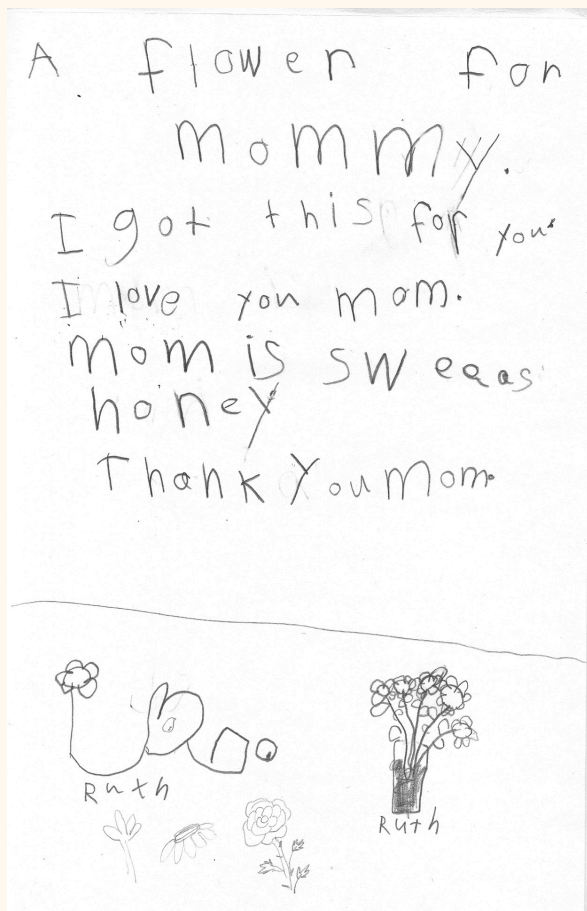 A flower for
mommy.
I got this for you.
I love you mom.
mom is sw eeas
honey
Thank You mom.
Ruth
Ruth